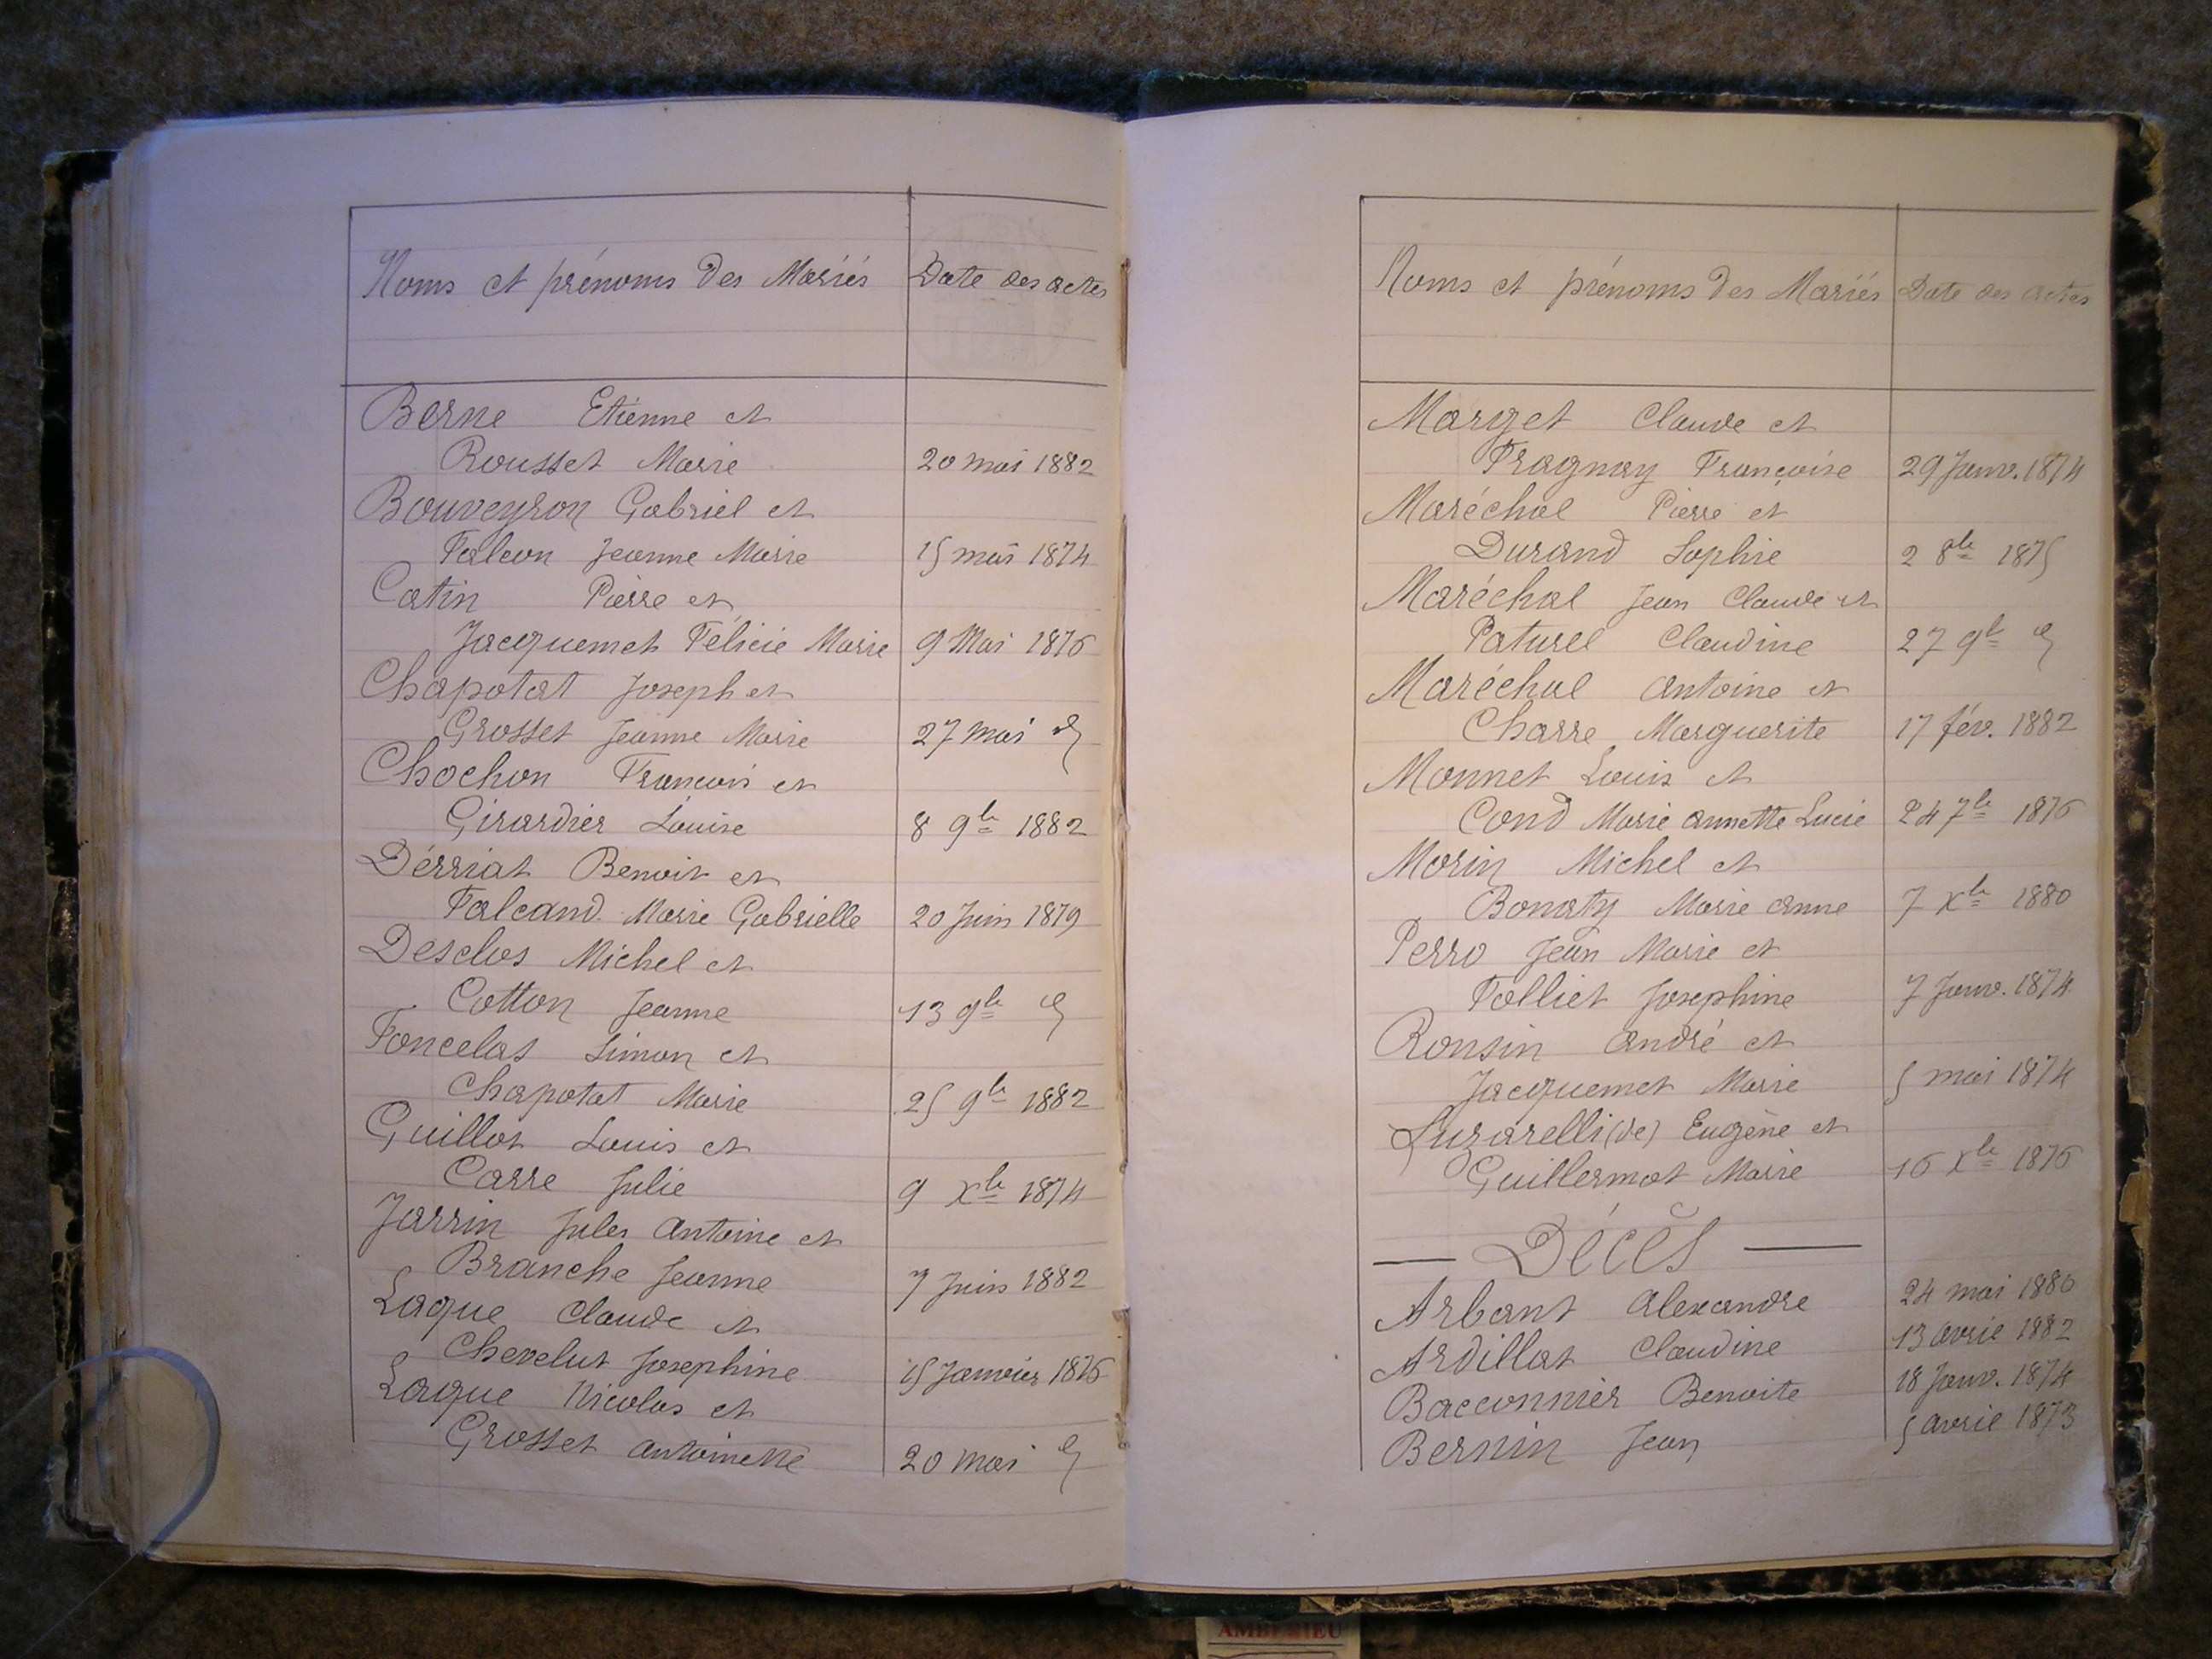 Noms et prénoms des Mariés Date des actes
Berne Etienne et
Rousset Marie 20 mai 1882
Bouveyron Gabriel et
Falcon Jeanne Marie 15 mai 1874
Catin Pierre et
Jacquemet Félicie Marie 9 Mai 1876
Chapotat Joseph et
Grosset Jeanne Marie 27 mai d
Chochon François et
Girardier Louise 8 9bre 1882
Dérriat Benoit et
Falcand Marie Gabrielle 20 Juin 1879
Desclos Michel et
Cotton Jeanne 13 9bre d
Foncelas Simon et
Chapotat Marie 25 9bre 1882
Guillot Louis et
Carre Julie 9 Xbre 1874
Jarrin Jules Antoine et
Branche Jeanne 7 Juin 1882
Laque Claude et
Chevelut Josephine 15 Janvier 1876
Laque Nicolas et
Grosset Antoinette 20 mai d
Noms et prénoms des Mariés Date des actes
Marget Claude et
Pragnay Françoise 29 Janv. 1874
Maréchal Pierre et
Durand Sophie 2 8bre 1875
Maréchal Jean Claude et
Paturel Claudine 27 9bre d
Maréchal Antoine et
Charre Marguerite 17 fév. 1882
Monnet Louis et
Cond Marie Annette Lucie 24 7bre 1876
Morin Michel et
Bonaty Marie Anne 7 Xbre 1880
Perro Jean Marie et
Folliet Josephine 7 Janv. 1874
Ronsin André et
Jacquemet Marie 5 mai 1874
Luzarelli (de) Eugène et
Guillermot Marie 16 Xbre 1876
— Décès —
Arbant Alexandre 24 mai 1880
Ardillat Claudine 13 avril 1882
Bacconnier Benoite 18 Janv. 1874
Bernin Jean 5 avril 1873